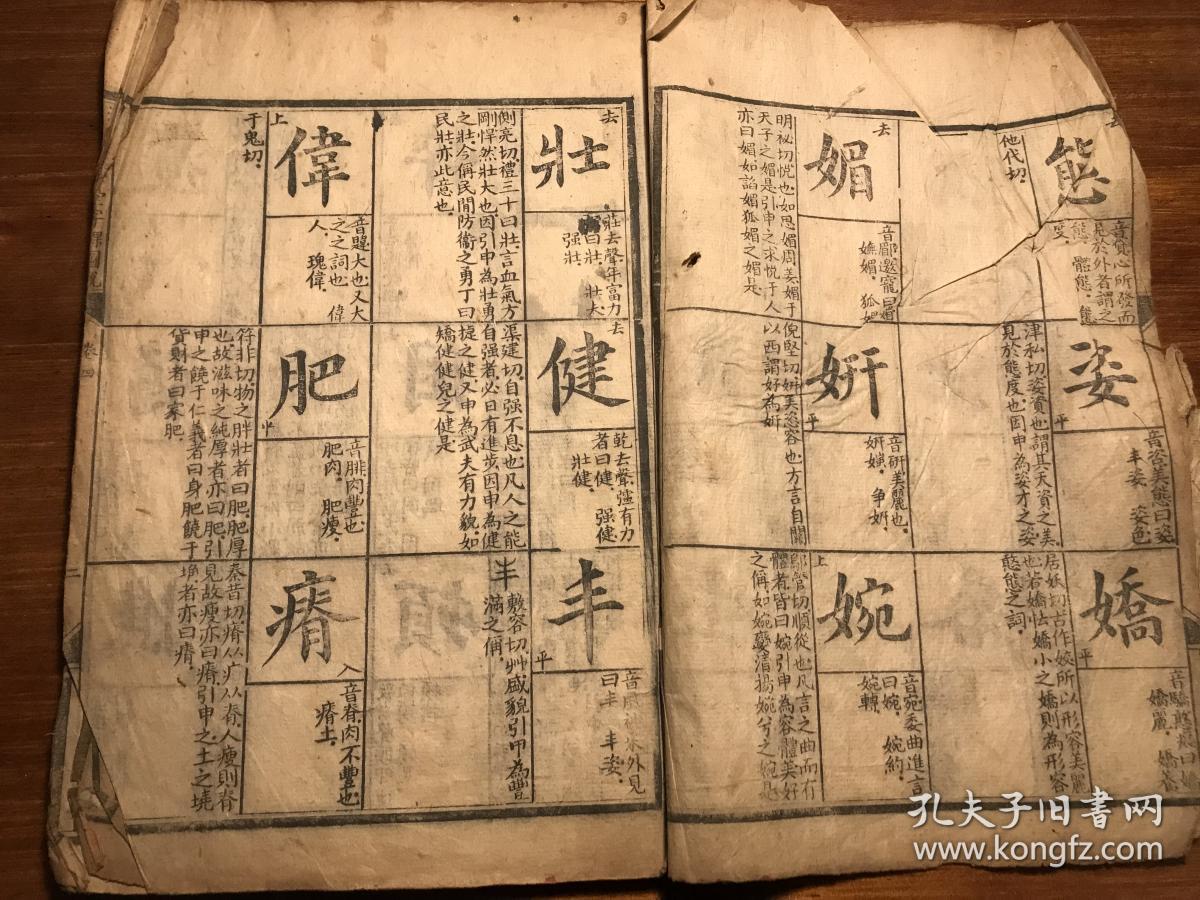 去
態
他代切
體態
姿
平
音咨美態曰姿
丰姿 姿色
津私切姿資也謂其天資之美
見於態度也因申為姿才之姿
嬌
平
居妖切古作姣所以形容美麗
也若嬌怯嬌小之嬌則為形容
憨態之詞
去
媚
音郿邀寵曰媚
嫵媚 狐媚
明祕切悅也如思媚周姜媚于
天子之媚是引申之求悅于人
亦曰媚如諂媚狐媚之媚是
妍
平
音研美麗也
妍媸 爭妍
倪堅切妍美恣容也方言自關
以西謂好為妍
上
婉
音宛委曲進言
曰婉 婉約
婉轉
鄔管切順從也凡言之曲而有
體者皆曰婉引申為容體美好
之稱如婉孌清揚婉兮之婉是
去
壯
莊去聲年富力
曰壯 壯大
強壯
側亮切禮三十曰壯言血氣方
剛悍然壯大也因引申為壯勇
之壯今稱民間防衛之勇丁曰
民壯亦此意也
去
健
乾去聲強有力
者曰健 強健
壯健
渠建切自强不息也凡人之能
自强者必日有進步因申為健
捷之健又申為武夫有力貌如
矯健健兒之健是
丰
平
外見
曰丰 丰姿
敷容切艸盛貌引申為豐
滿之稱
上
偉
音韙大也又大
之之詞也 偉
人 瑰偉
于鬼切
肥
平
音腓肉豐也
肥肉 肥瘦
符非切物之胖壯者曰肥肥厚
也故滋味之純厚者亦曰肥引
申之饒于仁義者曰身肥饒于
貨財者曰家肥
瘠
入
音脊肉不豐也
瘠土
秦昔切瘠从疒从脊人瘦則脊
見故瘦亦曰瘠引申之土之墝
埆者亦曰瘠
卷四
二
孔夫子旧书网
www.kongfz.com